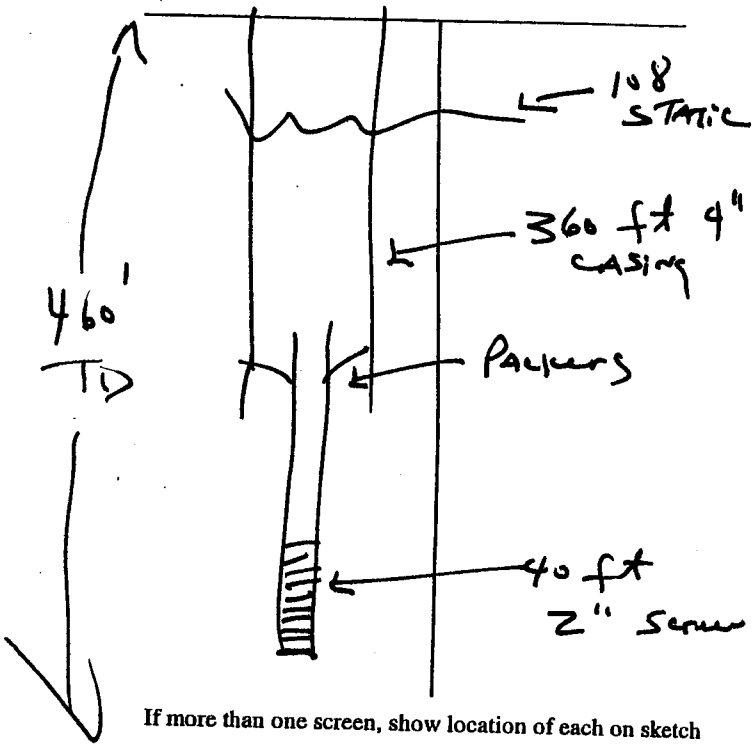 108
STATIC
360 ft 4"
CASING
460'
TD
PACKERS
40 ft
2" Screen
If more than one screen, show location of each on sketch